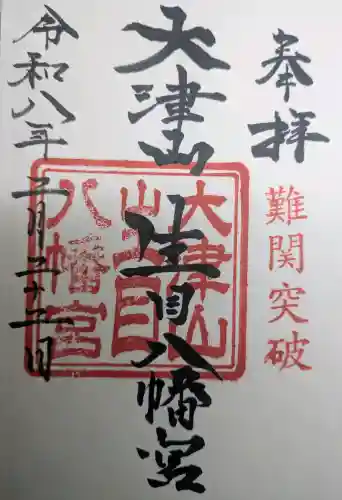 奉拝
難関突破
大津山生目八幡宮
大津山
生目
八幡宮
令和八年二月二十二日